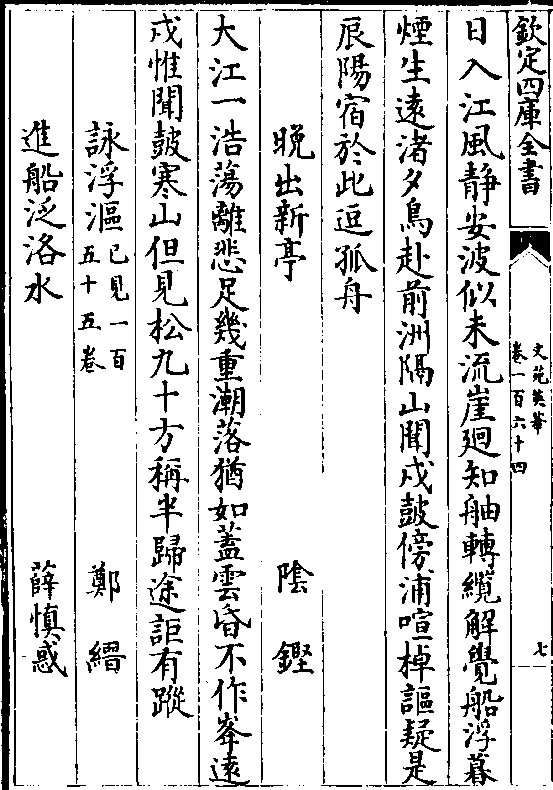 欽定四庫全書
文苑英華
卷一百六十四
七
日入江風静安波似未流崖廻知舳轉纜解覺船浮暮
煙生遠渚夕鳥赴前洲隔山聞戍鼓傍浦喧棹謳疑是
辰陽宿於此逗孤舟
晚出新亭 陰鏗
大江一浩蕩離悲足幾重潮落猶如蓋雲昏不作峯遠
戍惟聞鼓寒山但見松九十方稱半歸途詎有蹤
詠浮漚已見一百五十五卷 鄭繒
進船泛洛水 薛慎惑